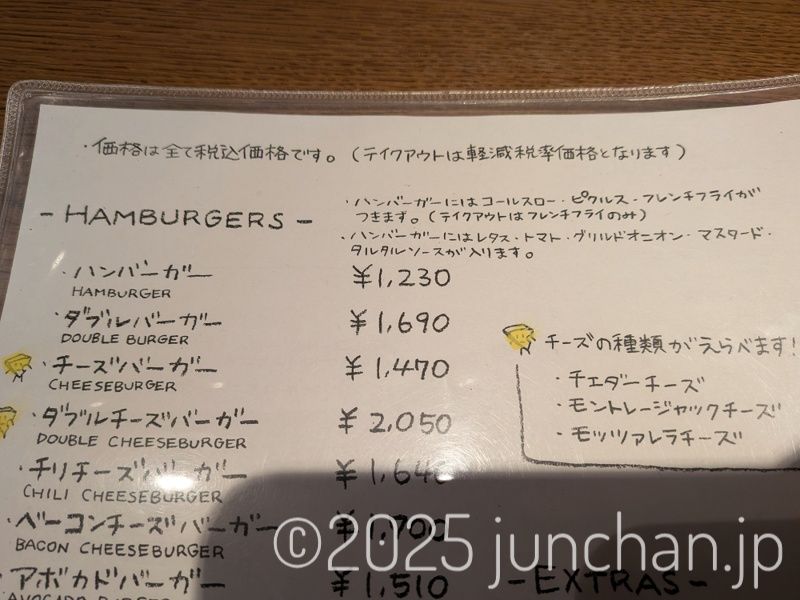 ・価格は全て税込価格です。(テイクアウトは軽減税率価格となります)
- HAMBURGERS -
・ハンバーガーにはコールスロー・ピクルス・フレンチフライが
つきます。(テイクアウトはフレンチフライのみ)
・ハンバーガーにはレタス・トマト・グリルドオニオン・マスタード・
タルタルソースが入ります。
・ハンバーガー ¥1,230
HAMBURGER
・ダブルバーガー ¥1,690
DOUBLE BURGER
・チーズバーガー ¥1,470
CHEESEBURGER
・ダブルチーズバーガー ¥2,050
DOUBLE CHEESEBURGER
・チリチーズバーガー ¥1,640
CHILI CHEESEBURGER
・ベーコンチーズバーガー ¥1,700
BACON CHEESEBURGER
・アボカドバーガー ¥1,510
AVOCADO BURGER
チーズの種類がえらべます!
・チェダーチーズ
・モントレージャックチーズ
・モッツァレラチーズ
- EXTRAS -
©2025 junchan.jp